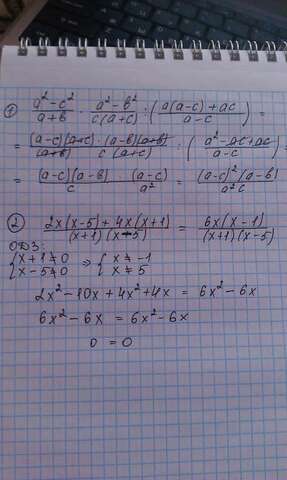 1) (a² - c²)/(a+b) · (a² - b²)/(c(a+c)) : ((a(a-c)+ac)/(a-c)) =
= ((a-c)(a+c)·(a-b)(a+b))/((a+b) c (a+c)) : ((a² - ac + ac)/(a-c)) =
= ((a-c)(a-b))/c · (a-c)/a² = ((a-c)²(a-b))/(a²c)
2) (2x(x-5)+4x(x+1))/((x+1)(x-5)) = (6x(x-1))/((x+1)(x-5))
ОДЗ:
{x+1≠0 ⇒ {x≠-1
{x-5≠0 {x≠5
2x²-10x+4x²+4x = 6x²-6x
6x²-6x = 6x²-6x
0 = 0